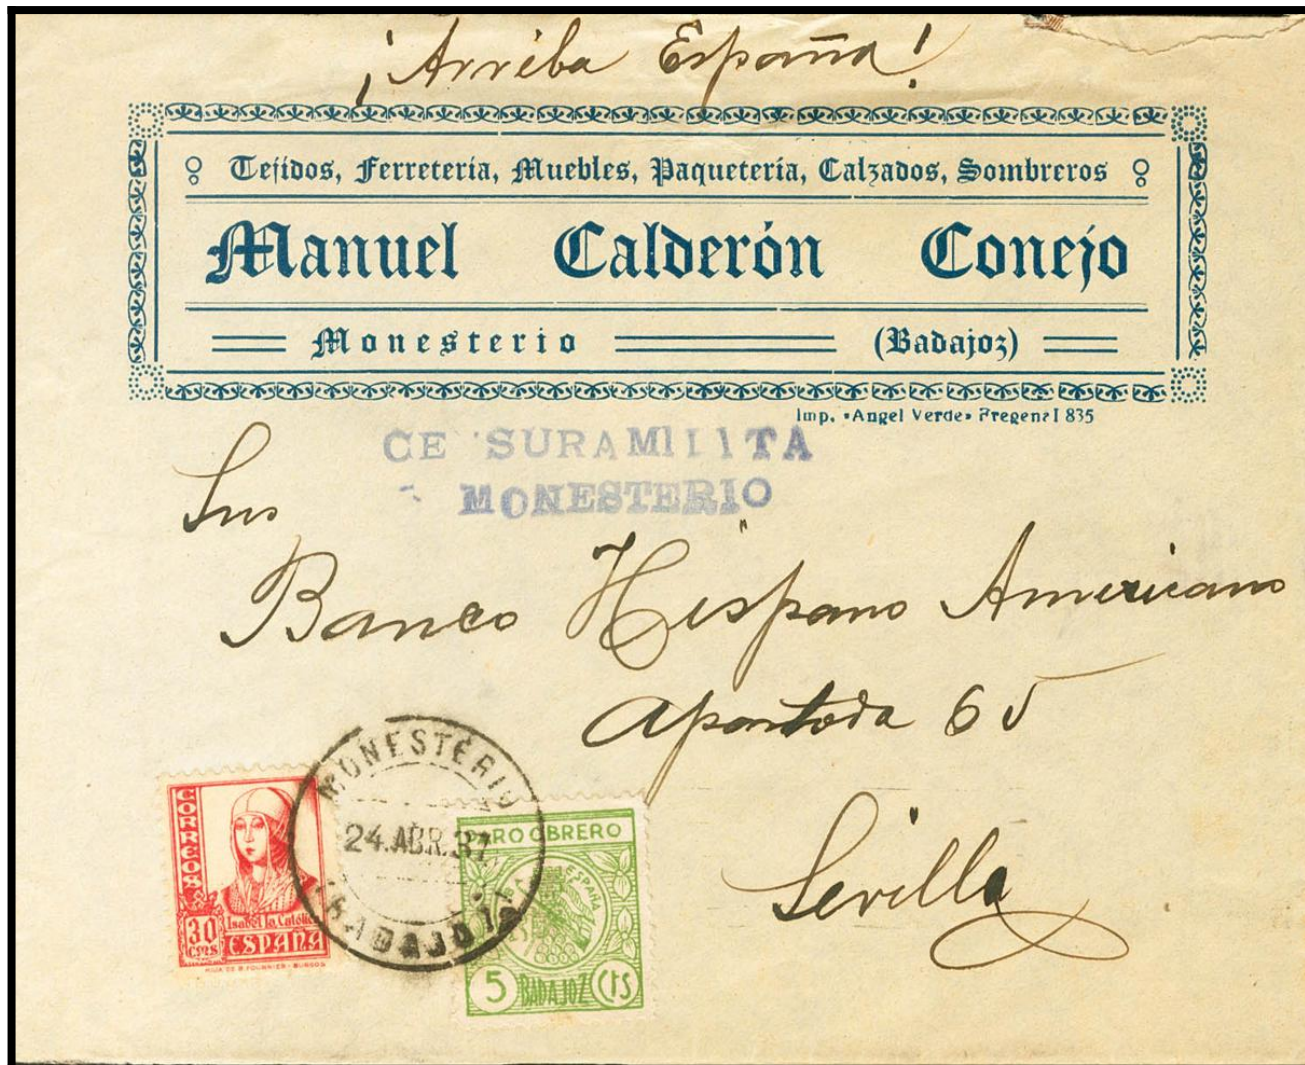 ¡Arriba España!
Tejidos, Ferretería, Muebles, Paquetería, Calzados, Sombreros
Manuel Calderón Conejo
Monesterio (Badajoz)
Imp. «Angel Verde» Fregenal 835
CE SURA MILITA
MONESTERIO
Banco Hispano Americano
Apartado 65
Sevilla
MONESTERIO
24.ABR.37
(BADAJOZ)
CORREOS
30
CTMS
Isabel la Católica
ESPAÑA
HIJA DE B. FOURNIER - BURGOS
PARO OBRERO
ESPAÑA
5 BADAJOZ Cts